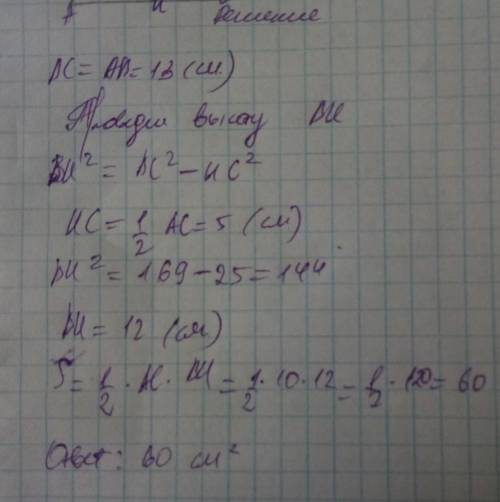 A H Решение
BC = AB = 13 (см)
Проведем высоту BH
BH² = BC² – HC²
HC = 1/2 AC = 5 (см)
BH² = 169 – 25 = 144
BH = 12 (см)
S = 1/2 · AC · BH = 1/2 · 10 · 12 = 1/2 · 120 = 60
Ответ: 60 см²